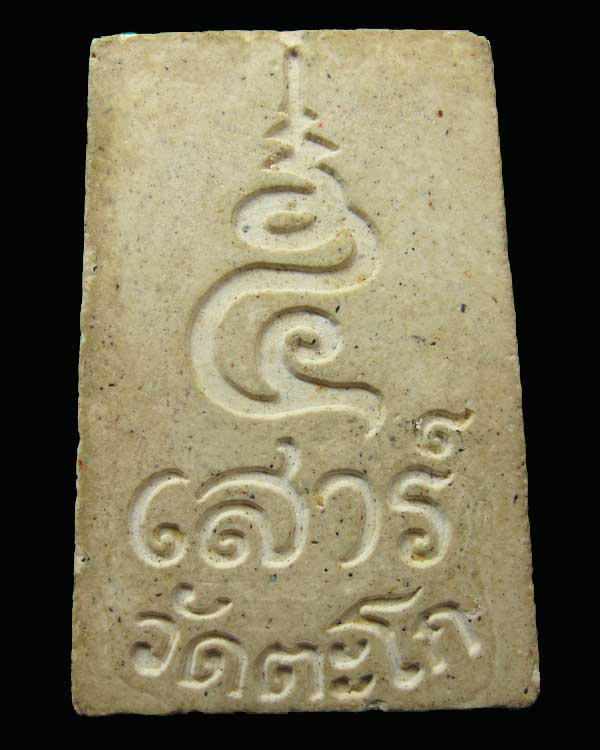 เสาร์
วัดตะโก